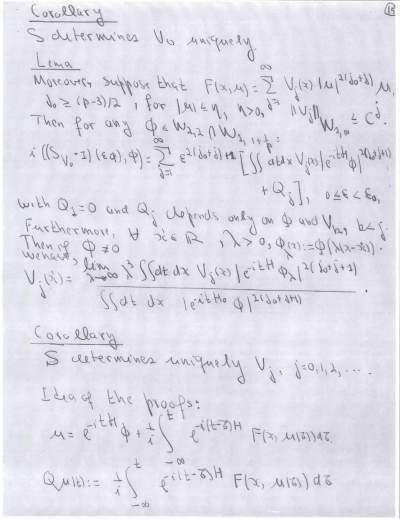 Corollary
S determines V₀ uniquely.
Lema
Moreover, suppose that F(x,u) = Σ_{j=1}^{∞} V_j(x) |u|^{2(j₀+j)} u,
j₀ ≥ (p-3)/2, for |u| ≤ η, η>0, ‖V_j‖_{W_{2,∞}} ≤ C^j.
Then for any ϕ ∈ W_{2,2} ∩ W_{2,1+1/p}:
i((S_{V₀}-I)(εϕ), ϕ) = Σ_{j=1}^{∞} ε^{2(j₀+j)+1} [∬ dt dx V_j(x) |e^{-itH} ϕ|^{2(j₀+j+1)}
+ Q_j], 0 ≤ ε ≤ ε₀,
with Q₁=0 and Q_j depends only on ϕ and V_k, k<j.
Furthermore, ∀ x' ∈ ℝ, λ>0, ϕ_λ(x) := ϕ(λ(x-x')).
Then if ϕ ≠ 0
we have,
V_j(x') = lim_{λ→∞} λ³ ∬ dt dx V_j(x) |e^{-itH} ϕ_λ|^{2(j₀+j+1)}
∬ dt dx |e^{-itH₀} ϕ|^{2(j₀+j+1)} .
Corollary
S determines uniquely V_j, j=0,1,2,....
Idea of the proofs:
u = e^{-itH} ϕ + 1/i ∫_{-∞}^{t} e^{-i(t-τ)H} F(x, u(τ)) dτ
Q u(t) := 1/i ∫_{-∞}^{t} e^{-i(t-τ)H} F(x, u(τ)) dτ